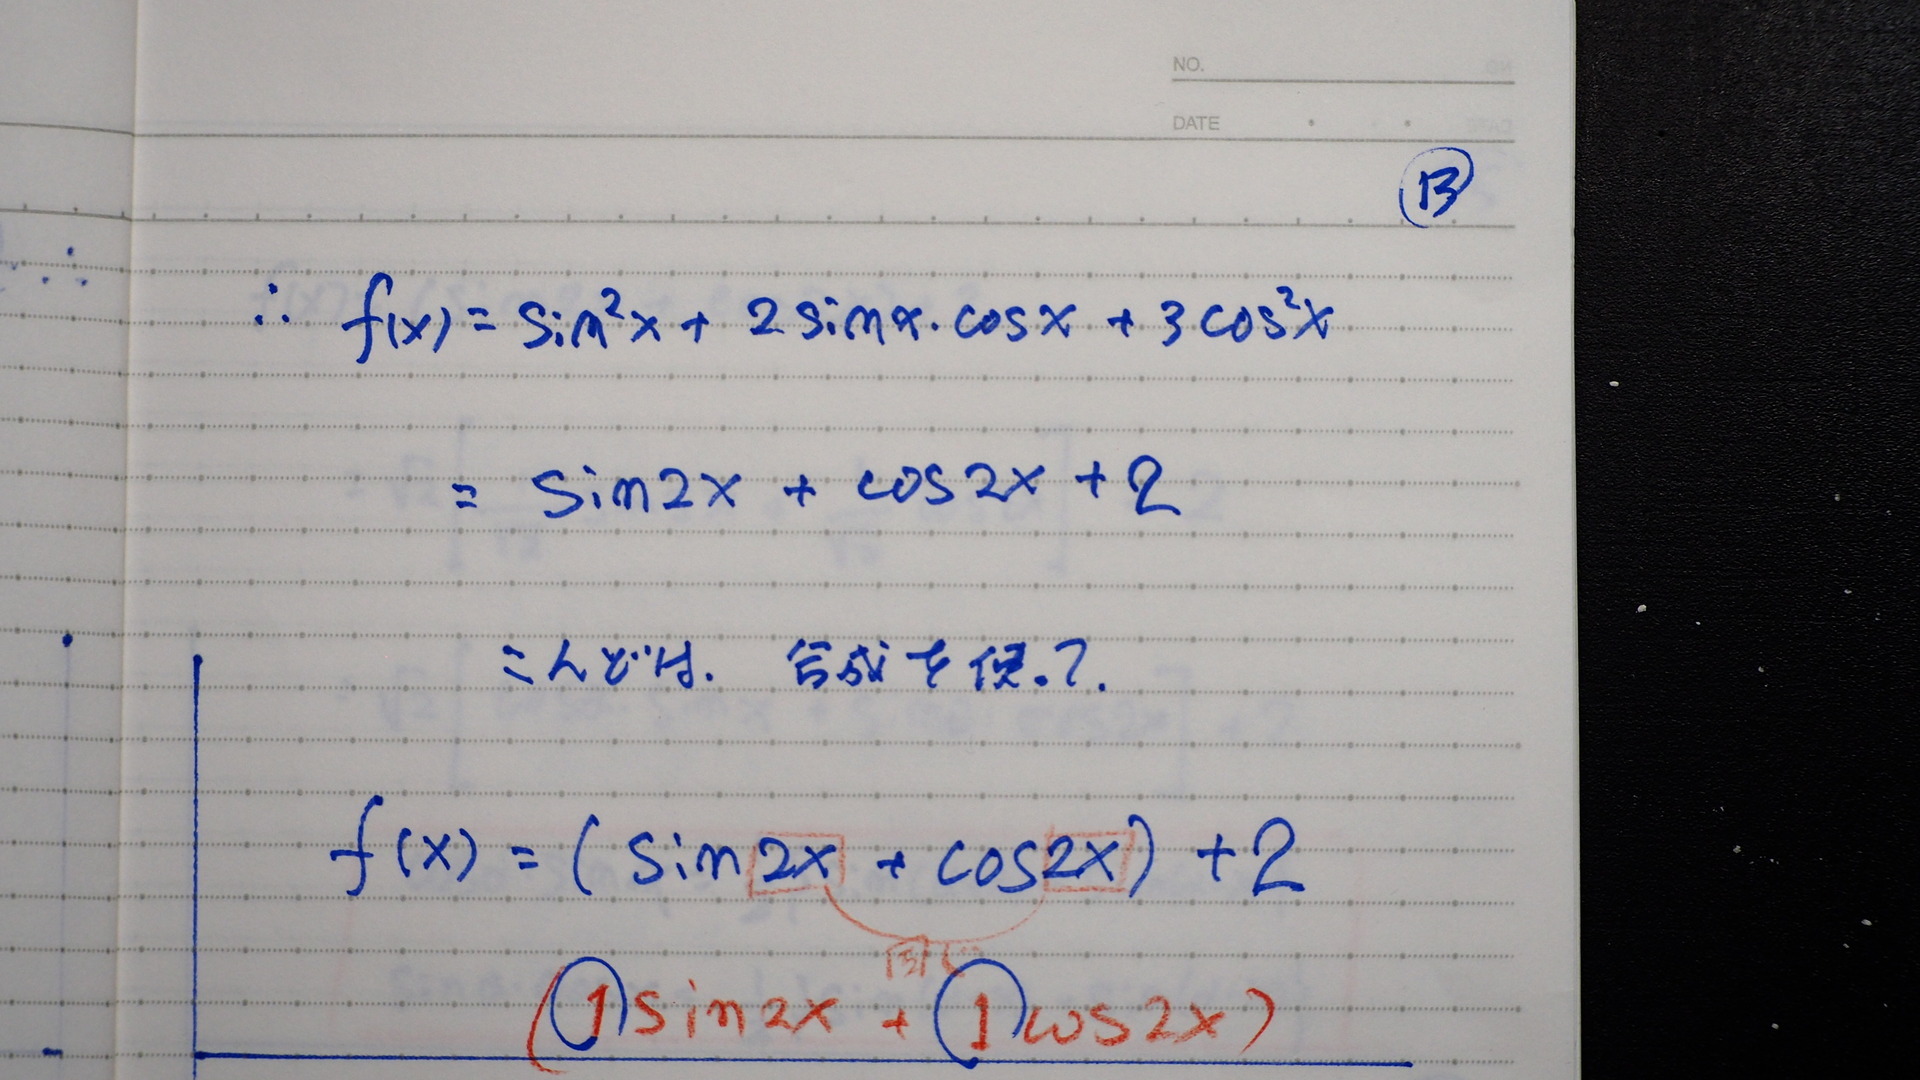 NO.
DATE
⑬
∴ f(x) = sin²x + 2 sinx・cosx + 3 cos²x
= sin2x + cos2x + 2
こんどは. 合成を使って.
f(x) = (sin2x + cos2x) + 2
同じ
(1 sin2x + 1 cos2x)